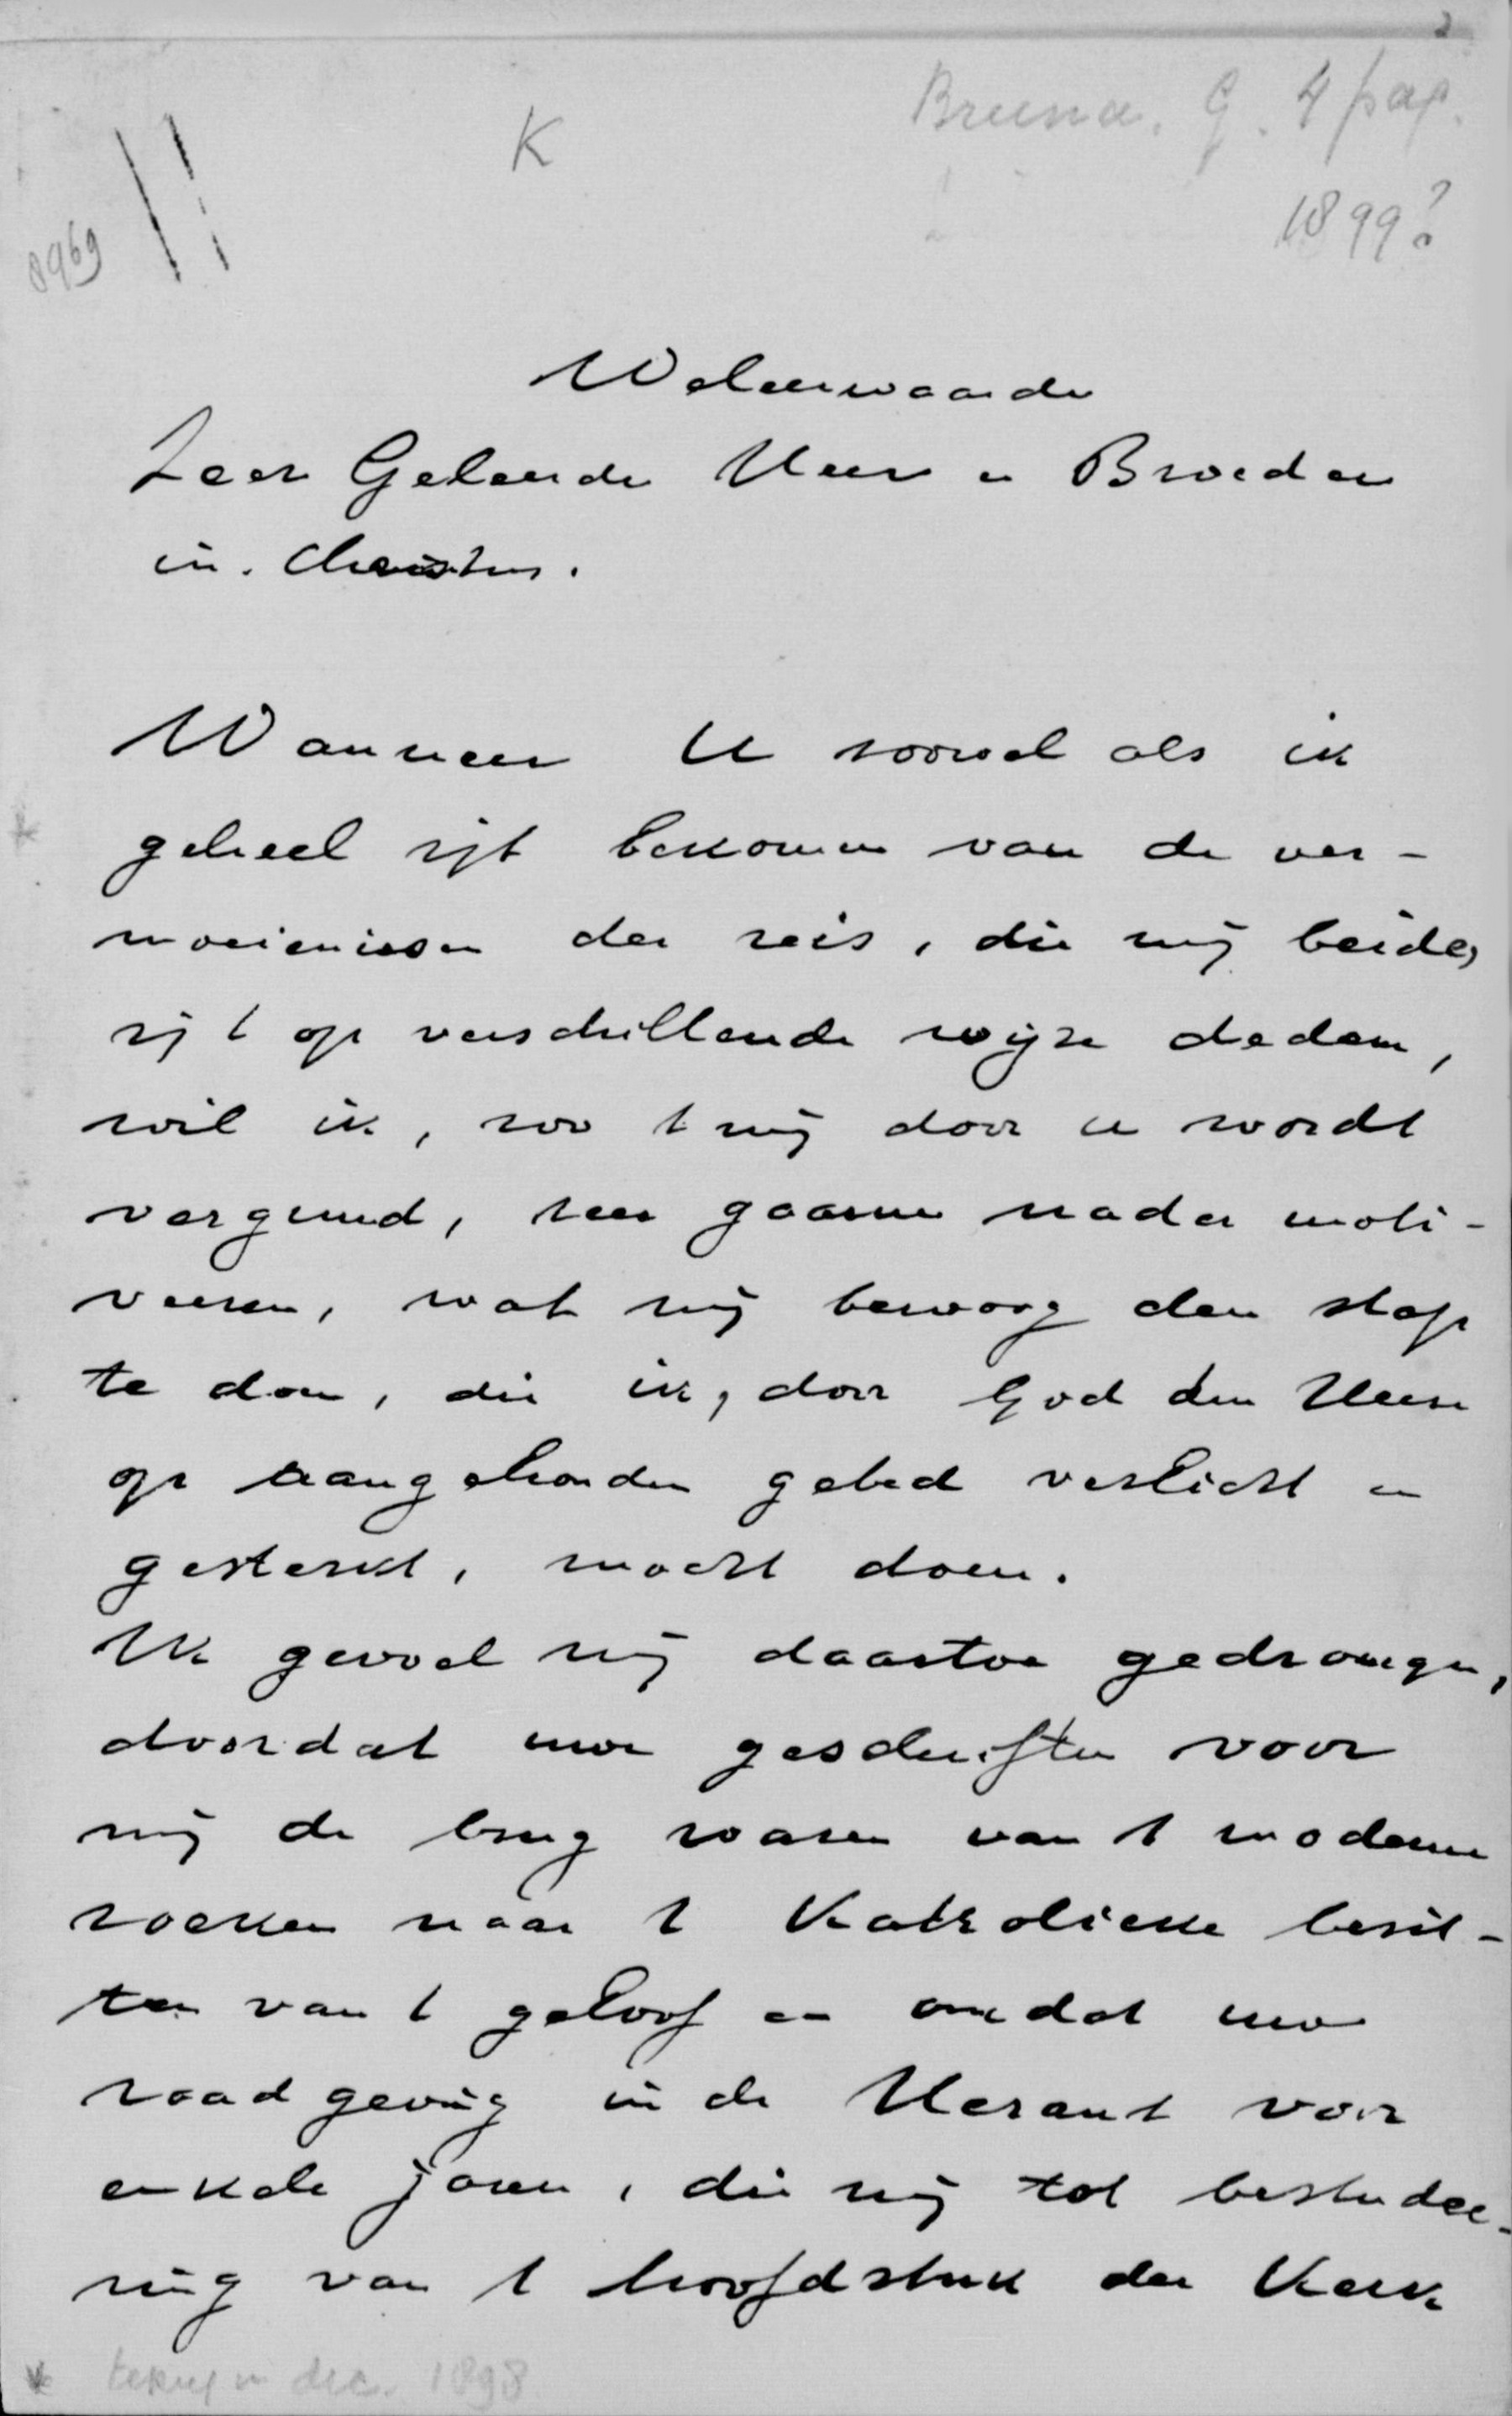 Bruna. G. 4 pag.
K
1899?
8969
Weleerwaarde
Zeer Geleerde Heer en Broeder
in Christus.
Wanneer U zoowel als ik
geheel zijt bekomen van de ver-
moeienissen der reis, die wij beide,
zij 't op verschillende wijze deden,
wil ik, zoo 't mij door u wordt
vergund, zeer gaarne nader moti-
veeren, wat mij bewoog den stap
te doen, die ik, door God den Heere
op aangehouden gebed verlicht en
gesterkt, mocht doen.
Ik gevoel mij daartoe gedrongen,
doordat uwe geschriften voor
mij de brug waren van 't moderne
zoeken naar 't Katholieke bezit-
ten van 't geloof en omdat uwe
raadgeving in de Heraut voor
enkele jaren, die mij tot bestudee-
ring van 't hoofdstuk der Kerk
* terug in dec. 1898